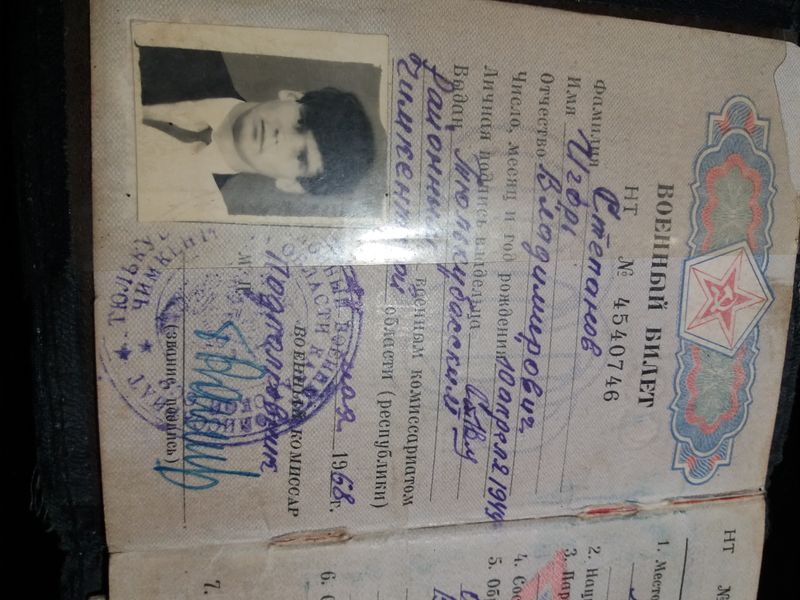 ВОЕННЫЙ БИЛЕТ
НТ № 4540746
Фамилия Степанов
Имя Игорь
Отчество Владимирович
Число, месяц и год рождения 10 апреля 1949
Личная подпись владельца
Выдан Тюлькубасский
Районным военным комиссариатом
Чимкентской области (республики)
мая 1968 г.
ВОЕННЫЙ КОМИССАР
М. П. Подполковник
(звание, подпись)
НТ №
1. Место
2. Наци
3. Пар
4. Сос
5. Об
6.
7.